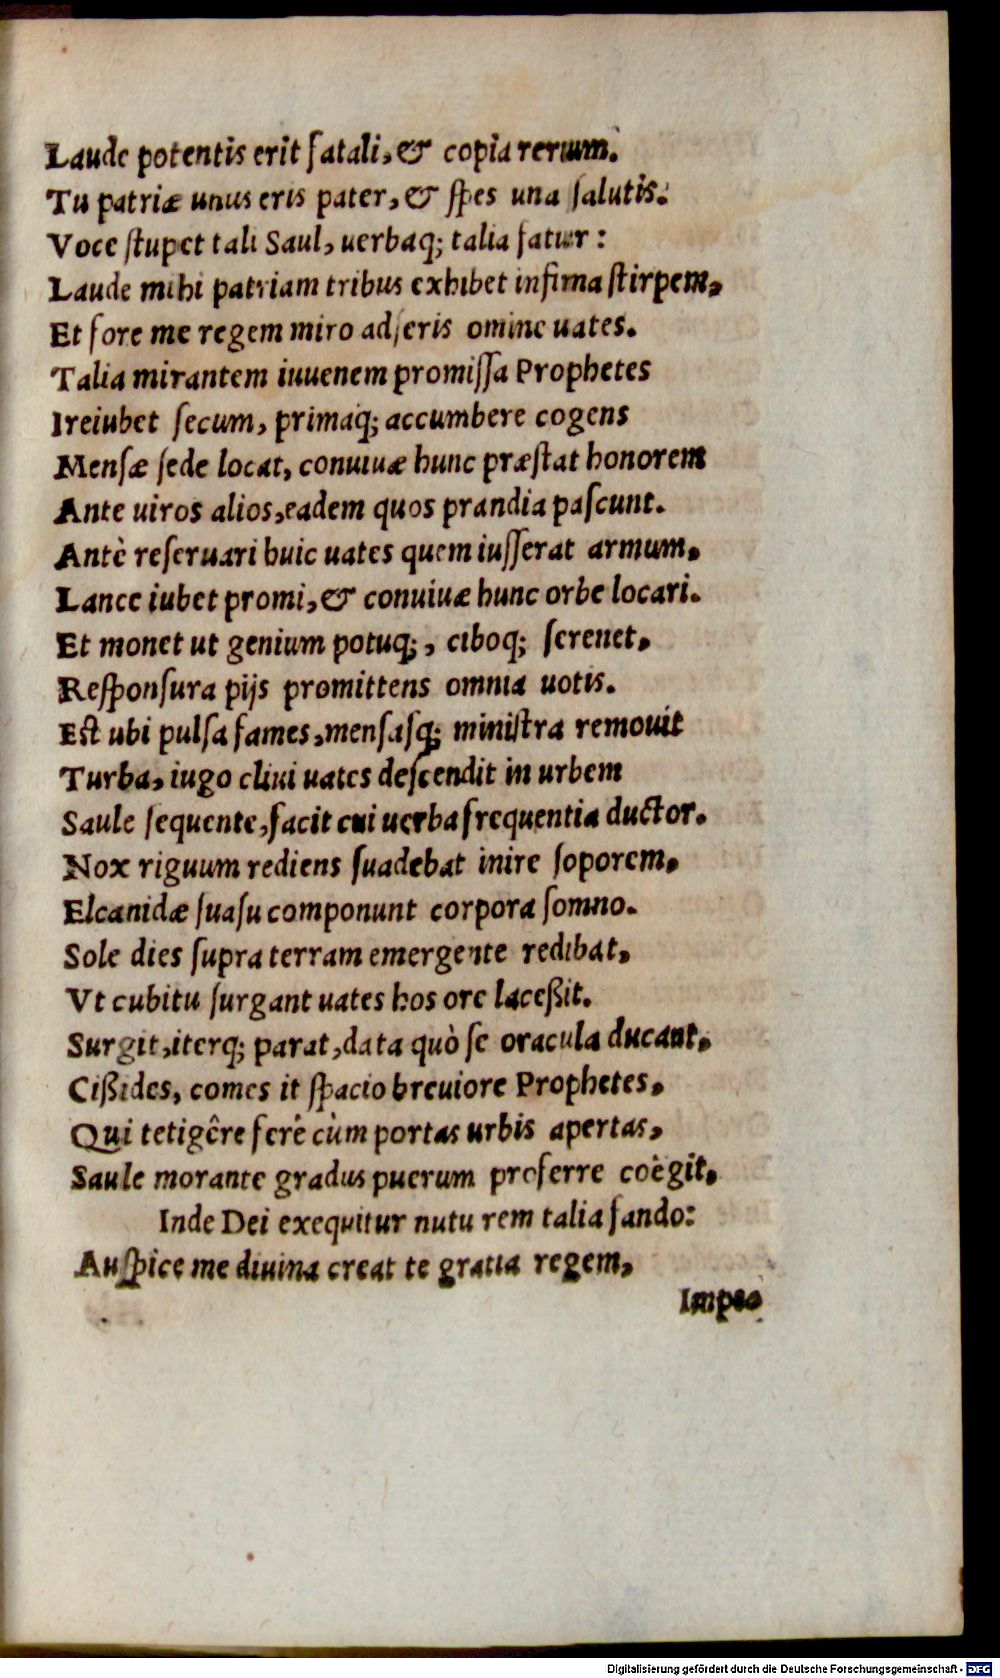 Laude potentis erit fatali, & copia rerum.
Tu patriæ unus eris pater, & ſpes una ſalutis.
Voce ſtupet tali Saul, uerbaq; talia fatur:
Laude mihi patriam tribus exhibet infima ſtirpem,
Et fore me regem miro adſeris omine uates.
Talia mirantem iuuenem promiſſa Prophetes
Ire iubet ſecum, primaq; accumbere cogens
Menſæ ſede locat, conuiuæ hunc præſtat honorem
Ante uiros alios, eadem quos prandia paſcunt.
Antè reſeruari huic uates quem iuſſerat armum,
Lance iubet promi, & conuiuæ hunc orbe locari.
Et monet ut genium potuq;, ciboq; ſerenet,
Reſponſura pijs promittens omnia uotis.
Eſt ubi pulſa fames, menſasq; miniſtra remouit
Turba, iugo cliui uates deſcendit in urbem
Saule ſequente, facit cui uerba frequentia ductor.
Nox riguum rediens ſuadebat inire ſoporem,
Elcanidæ ſuaſu componunt corpora ſomno.
Sole dies ſupra terram emergente redibat,
Vt cubitu ſurgant uates hos ore laceßit.
Surgit, iterq; parat, data quò ſe oracula ducant,
Cißides, comes it ſpacio breuiore Prophetes,
Qui tetigêre ferè cùm portas urbis apertas,
Saule morante gradus puerum proferre coëgit,
Inde Dei exequitur nutu rem talia fando:
Auſpice me diuina creat te gratia regem,
Impe-
Digitalisierung gefördert durch die Deutsche Forschungsgemeinschaft - DFG